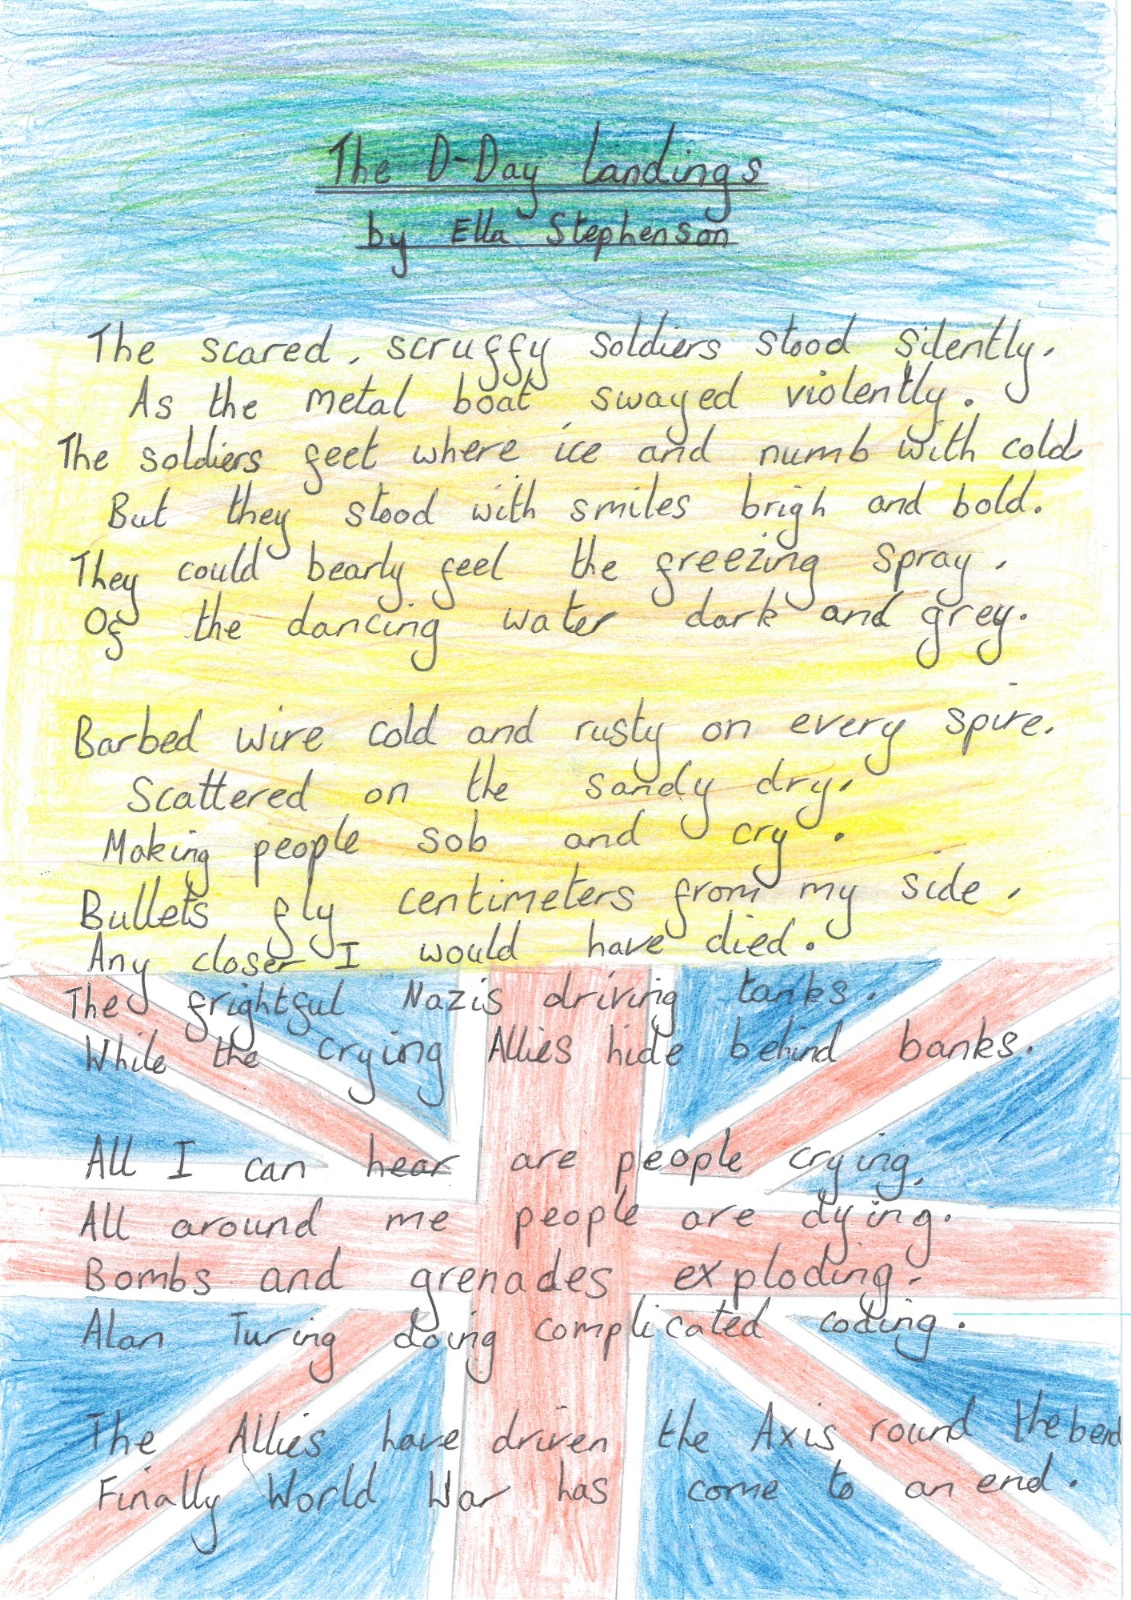 The D-Day landings
by Ella Stephenson
The scared, scruffy soldiers stood silently,
As the metal boat swayed violently.
The soldiers feet where ice and numb with cold
But they stood with smiles brigh and bold.
They could bearly feel the freezing spray,
Of the dancing water dark and grey.
Barbed wire cold and rusty on every spire.
Scattered on the sandy dry,
Making people sob and cry.
Bullets fly centimeters from my side,
Any closer I would have died.
The frightful Nazis driving tanks.
While the crying Allies hide behind banks.
All I can hear are people crying,
All around me people are dying.
Bombs and grenades exploding,
Alan Turing doing complicated coding.
The Allies have driven the Axis round the bend
Finally World War has come to an end.